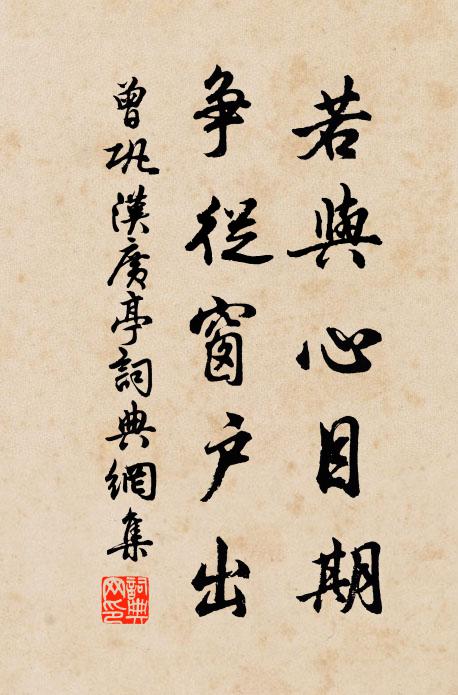 若與心目期
争從窗户出
曾巩漢廣亭詞典網集
詞典
网印